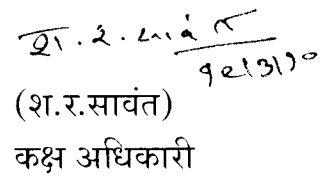 श. र. सावंत
१९।३।१०
(श.र.सावंत)
कक्ष अधिकारी